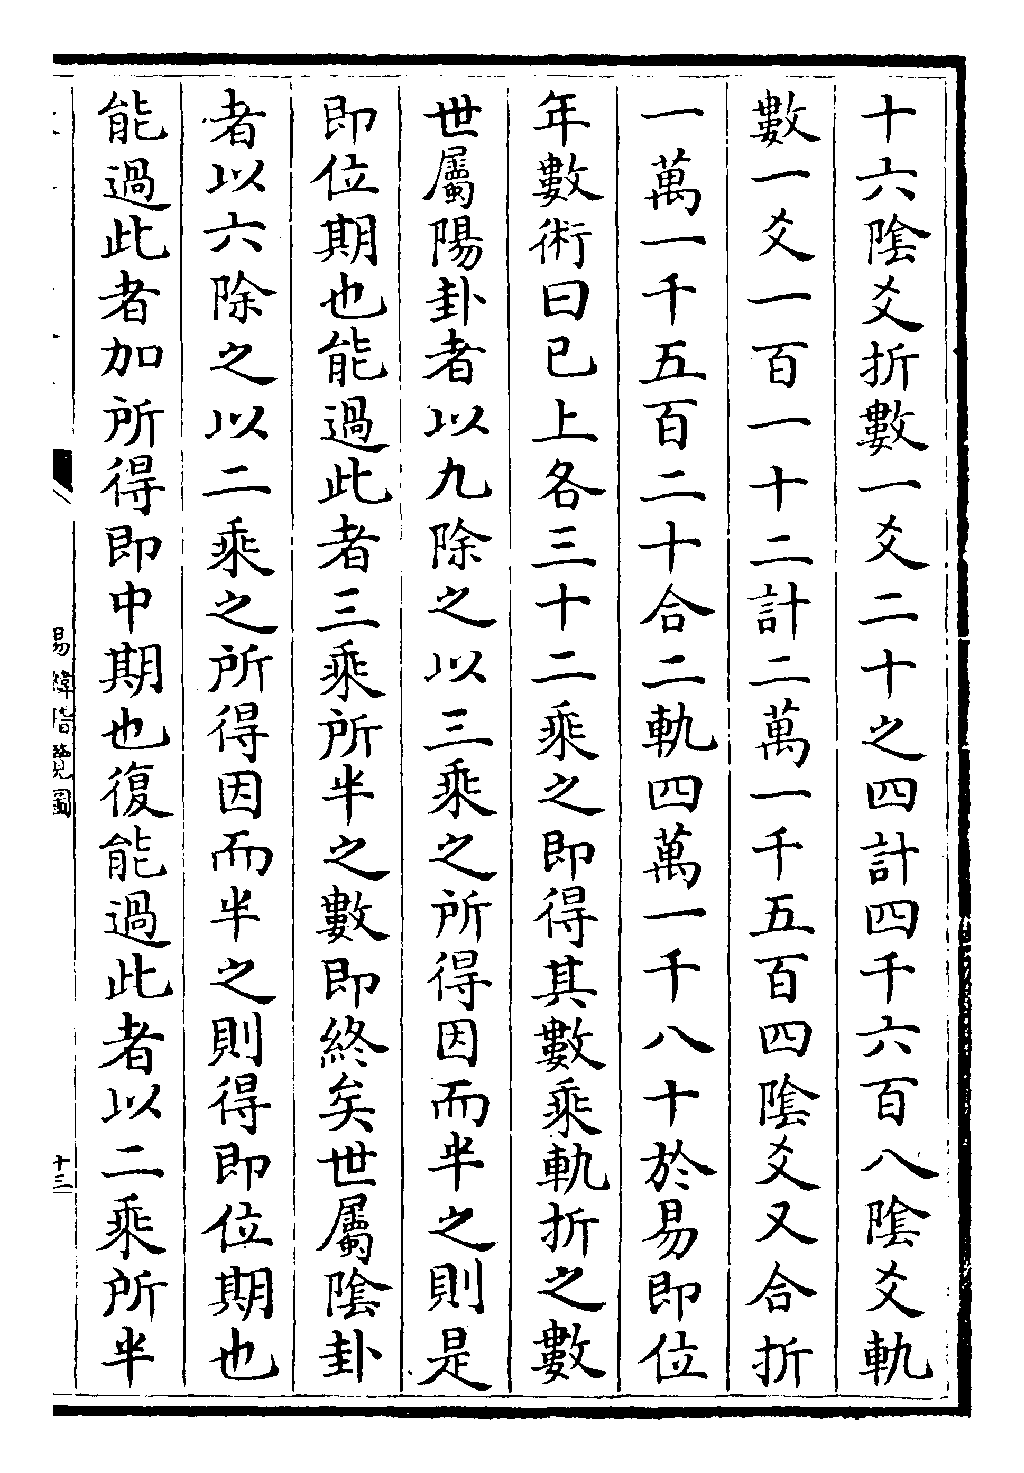 十六陰爻折數一爻二十之四計四千六百八陰爻軌
數一爻一百一十二計二萬一千五百四陰爻又合折
一萬一千五百二十合二軌四萬一千八十於易即位
年數術曰已上各三十二乘之即得其數乘軌折之數
世屬陽卦者以九除之以三乘之所得因而半之則是
即位期也能過此者三乘所半之數即終矣世屬陰卦
者以六除之以二乘之所得因而半之則得即位期也
能過此者加所得即中期也復能過此者以二乘所半
易緯稽覽圖
十三